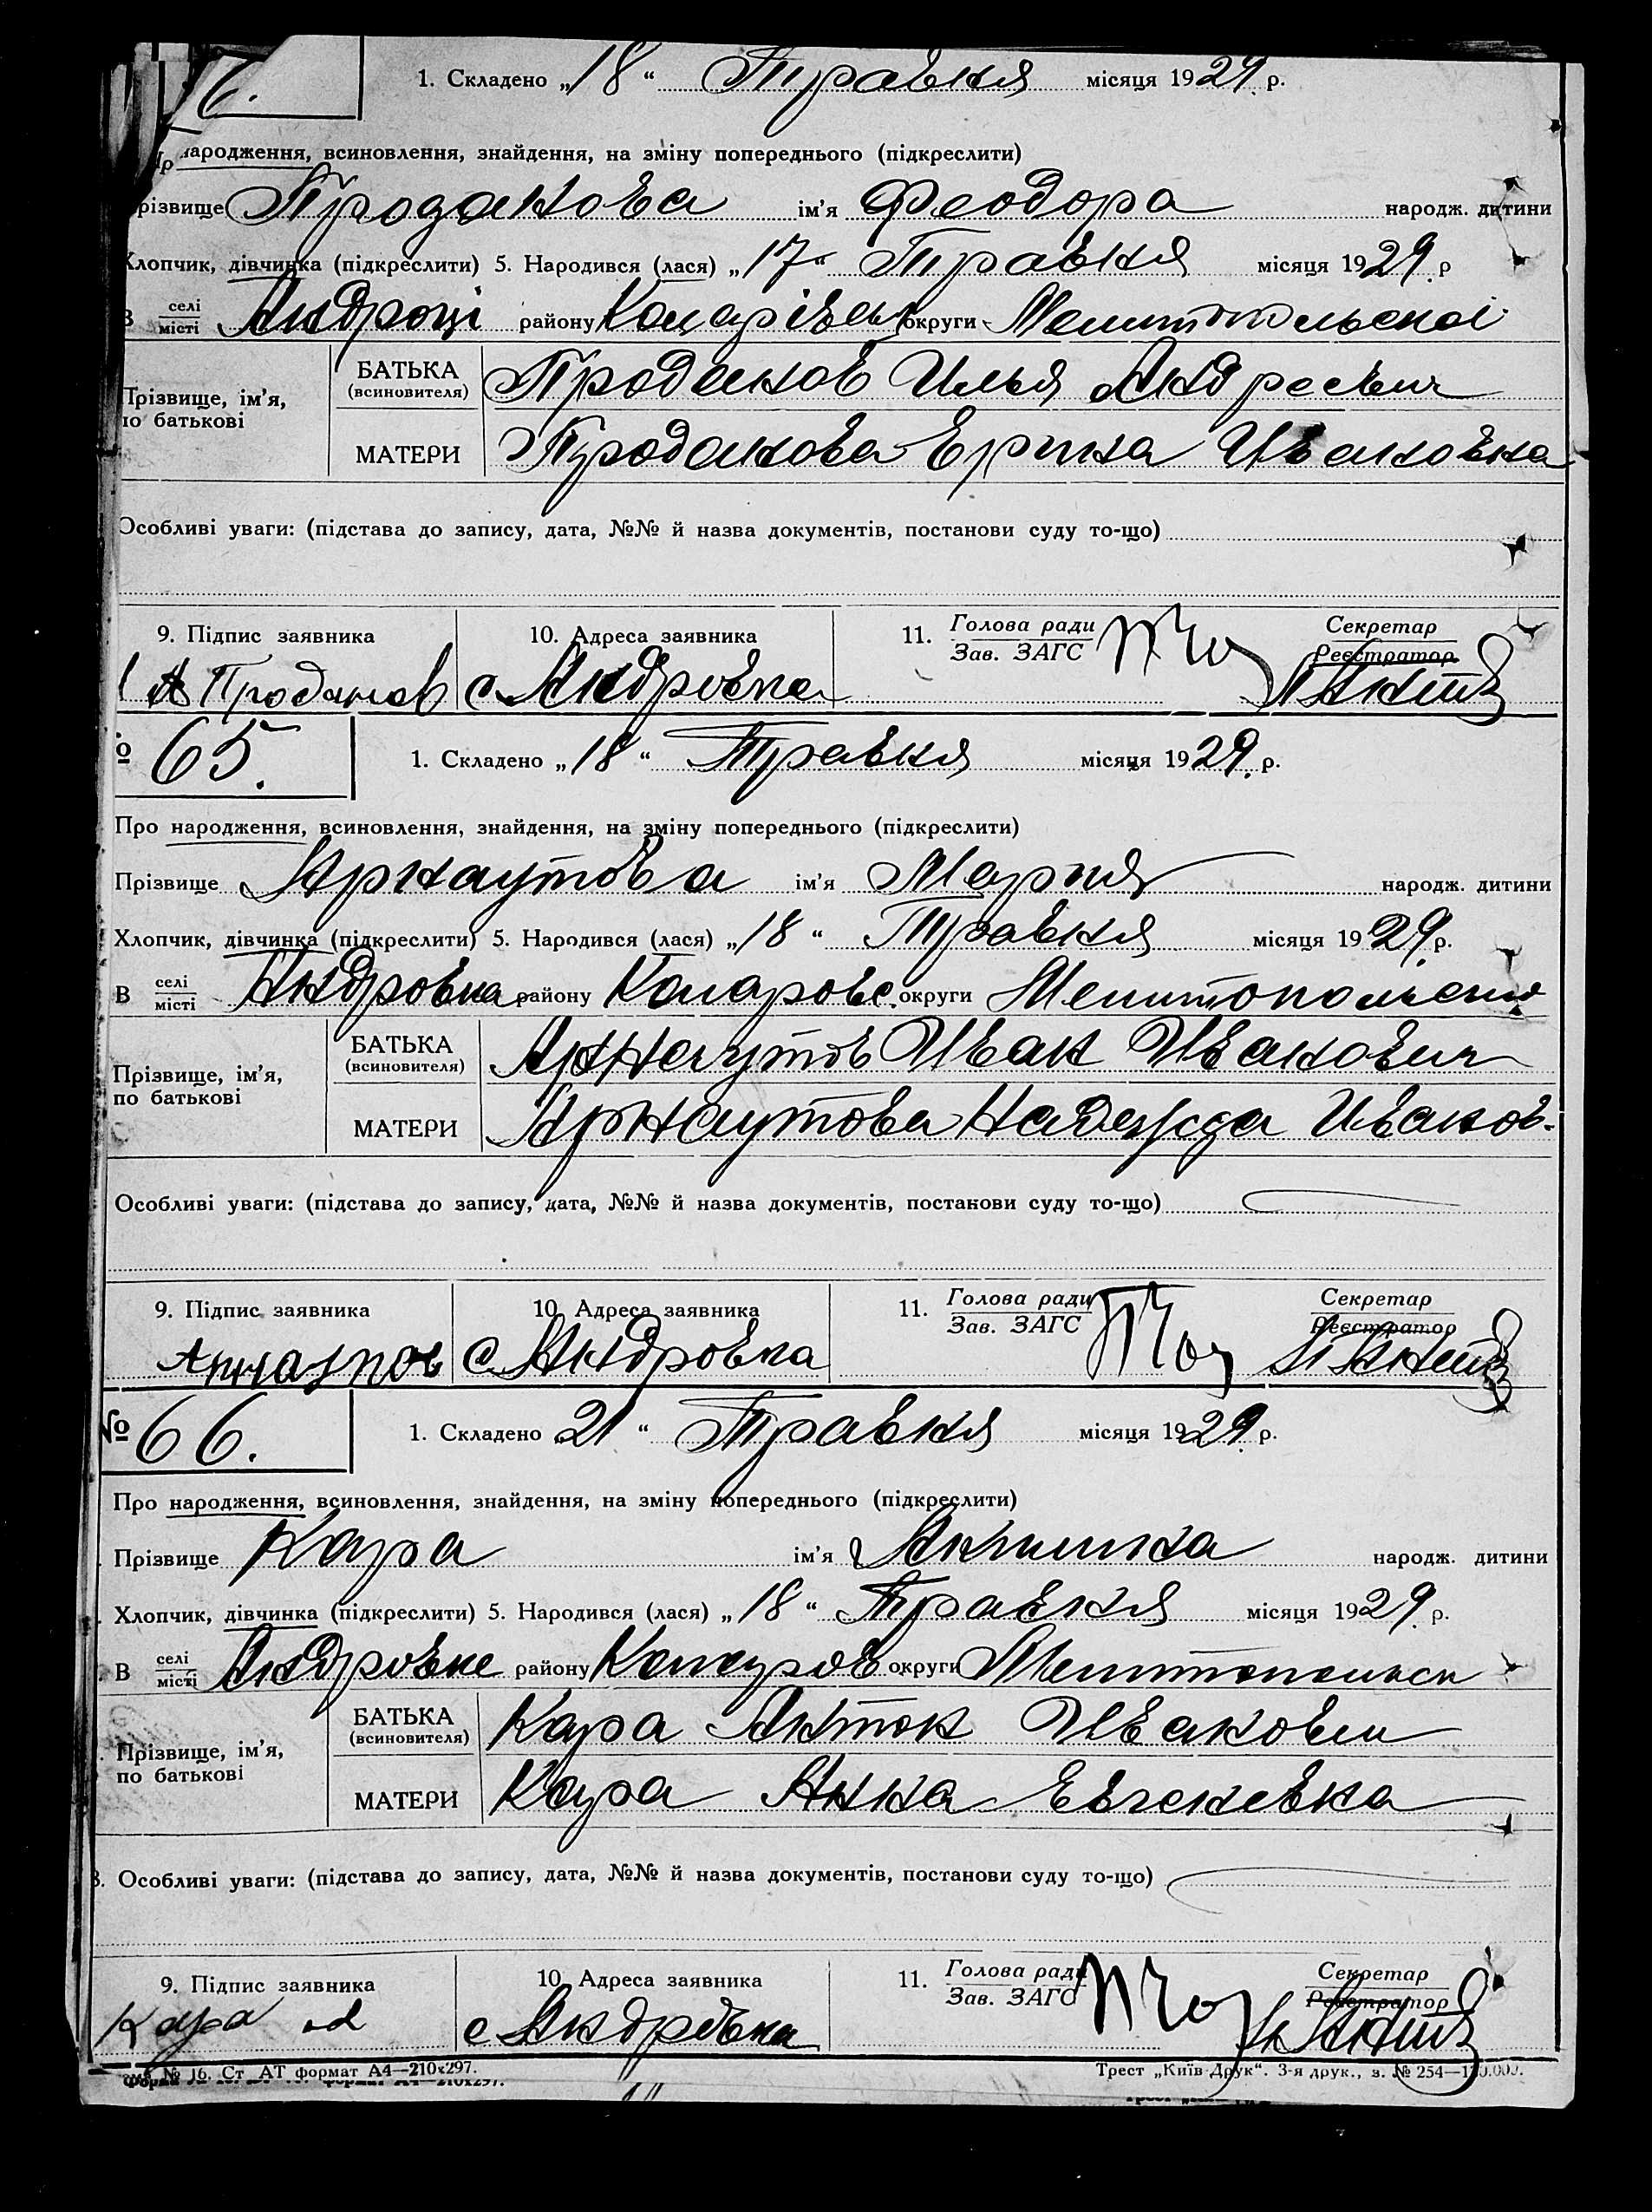 1. Складено „18“ Травня місяця 1929 р.
народження, всиновлення, знайдення, на зміну попереднього (підкреслити)
різвище Проданова ім'я Феодора народж. дитини
Хлопчик, дівчинка (підкреслити) 5. Народився (лася) „17“ Травня місяця 1929 р
В селі
місті району округи Мелитопольскої
Прізвище, ім'я,
по батькові
БАТЬКА
(всиновителя) Проданов Илья Андреевич
МАТЕРИ Проданова Ерина Ивановна
Особливі уваги: (підстава до запису, дата, №№ й назва документів, постанови суду то-що)
9. Підпис заявника 10. Адреса заявника 11. Голова ради
Зав. ЗАГС Секретар
Реєстратор
Проданов с Андровка
№ 65. 1. Складено „18“ Травня місяця 1929 р.
Про народження, всиновлення, знайдення, на зміну попереднього (підкреслити)
Прізвище Арнаутова ім'я Мария народж. дитини
Хлопчик, дівчинка (підкреслити) 5. Народився (лася) „18“ Травня місяця 1929 р.
В селі
місті Андровка району Коларовс. округи
Прізвище, ім'я,
по батькові
БАТЬКА
(всиновителя) Арнаутов Иван Иванович
МАТЕРИ Арнаутова Надежда Иванов.
Особливі уваги: (підстава до запису, дата, №№ й назва документів, постанови суду то-що)
9. Підпис заявника 10. Адреса заявника 11. Голова ради
Зав. ЗАГС Секретар
Реєстратор
с Андровка
№ 66. 1. Складено „21“ Травня місяця 1929 р.
Про народження, всиновлення, знайдення, на зміну попереднього (підкреслити)
Прізвище Кара ім'я народж. дитини
Хлопчик, дівчинка (підкреслити) 5. Народився (лася) „18“ Травня місяця 1929 р.
В селі
місті Андровке району Коларов округи
Прізвище, ім'я,
по батькові
БАТЬКА
(всиновителя) Кара Антон Иванович
МАТЕРИ Кара Анна Евгеневна
8. Особливі уваги: (підстава до запису, дата, №№ й назва документів, постанови суду то-що)
9. Підпис заявника 10. Адреса заявника 11. Голова ради
Зав. ЗАГС Секретар
Реєстратор
Кара с Андровка
№ 16. Ст. АТ формат А4—210х297. Трест „Київ-Друк“. 3-я друк., з. № 254—